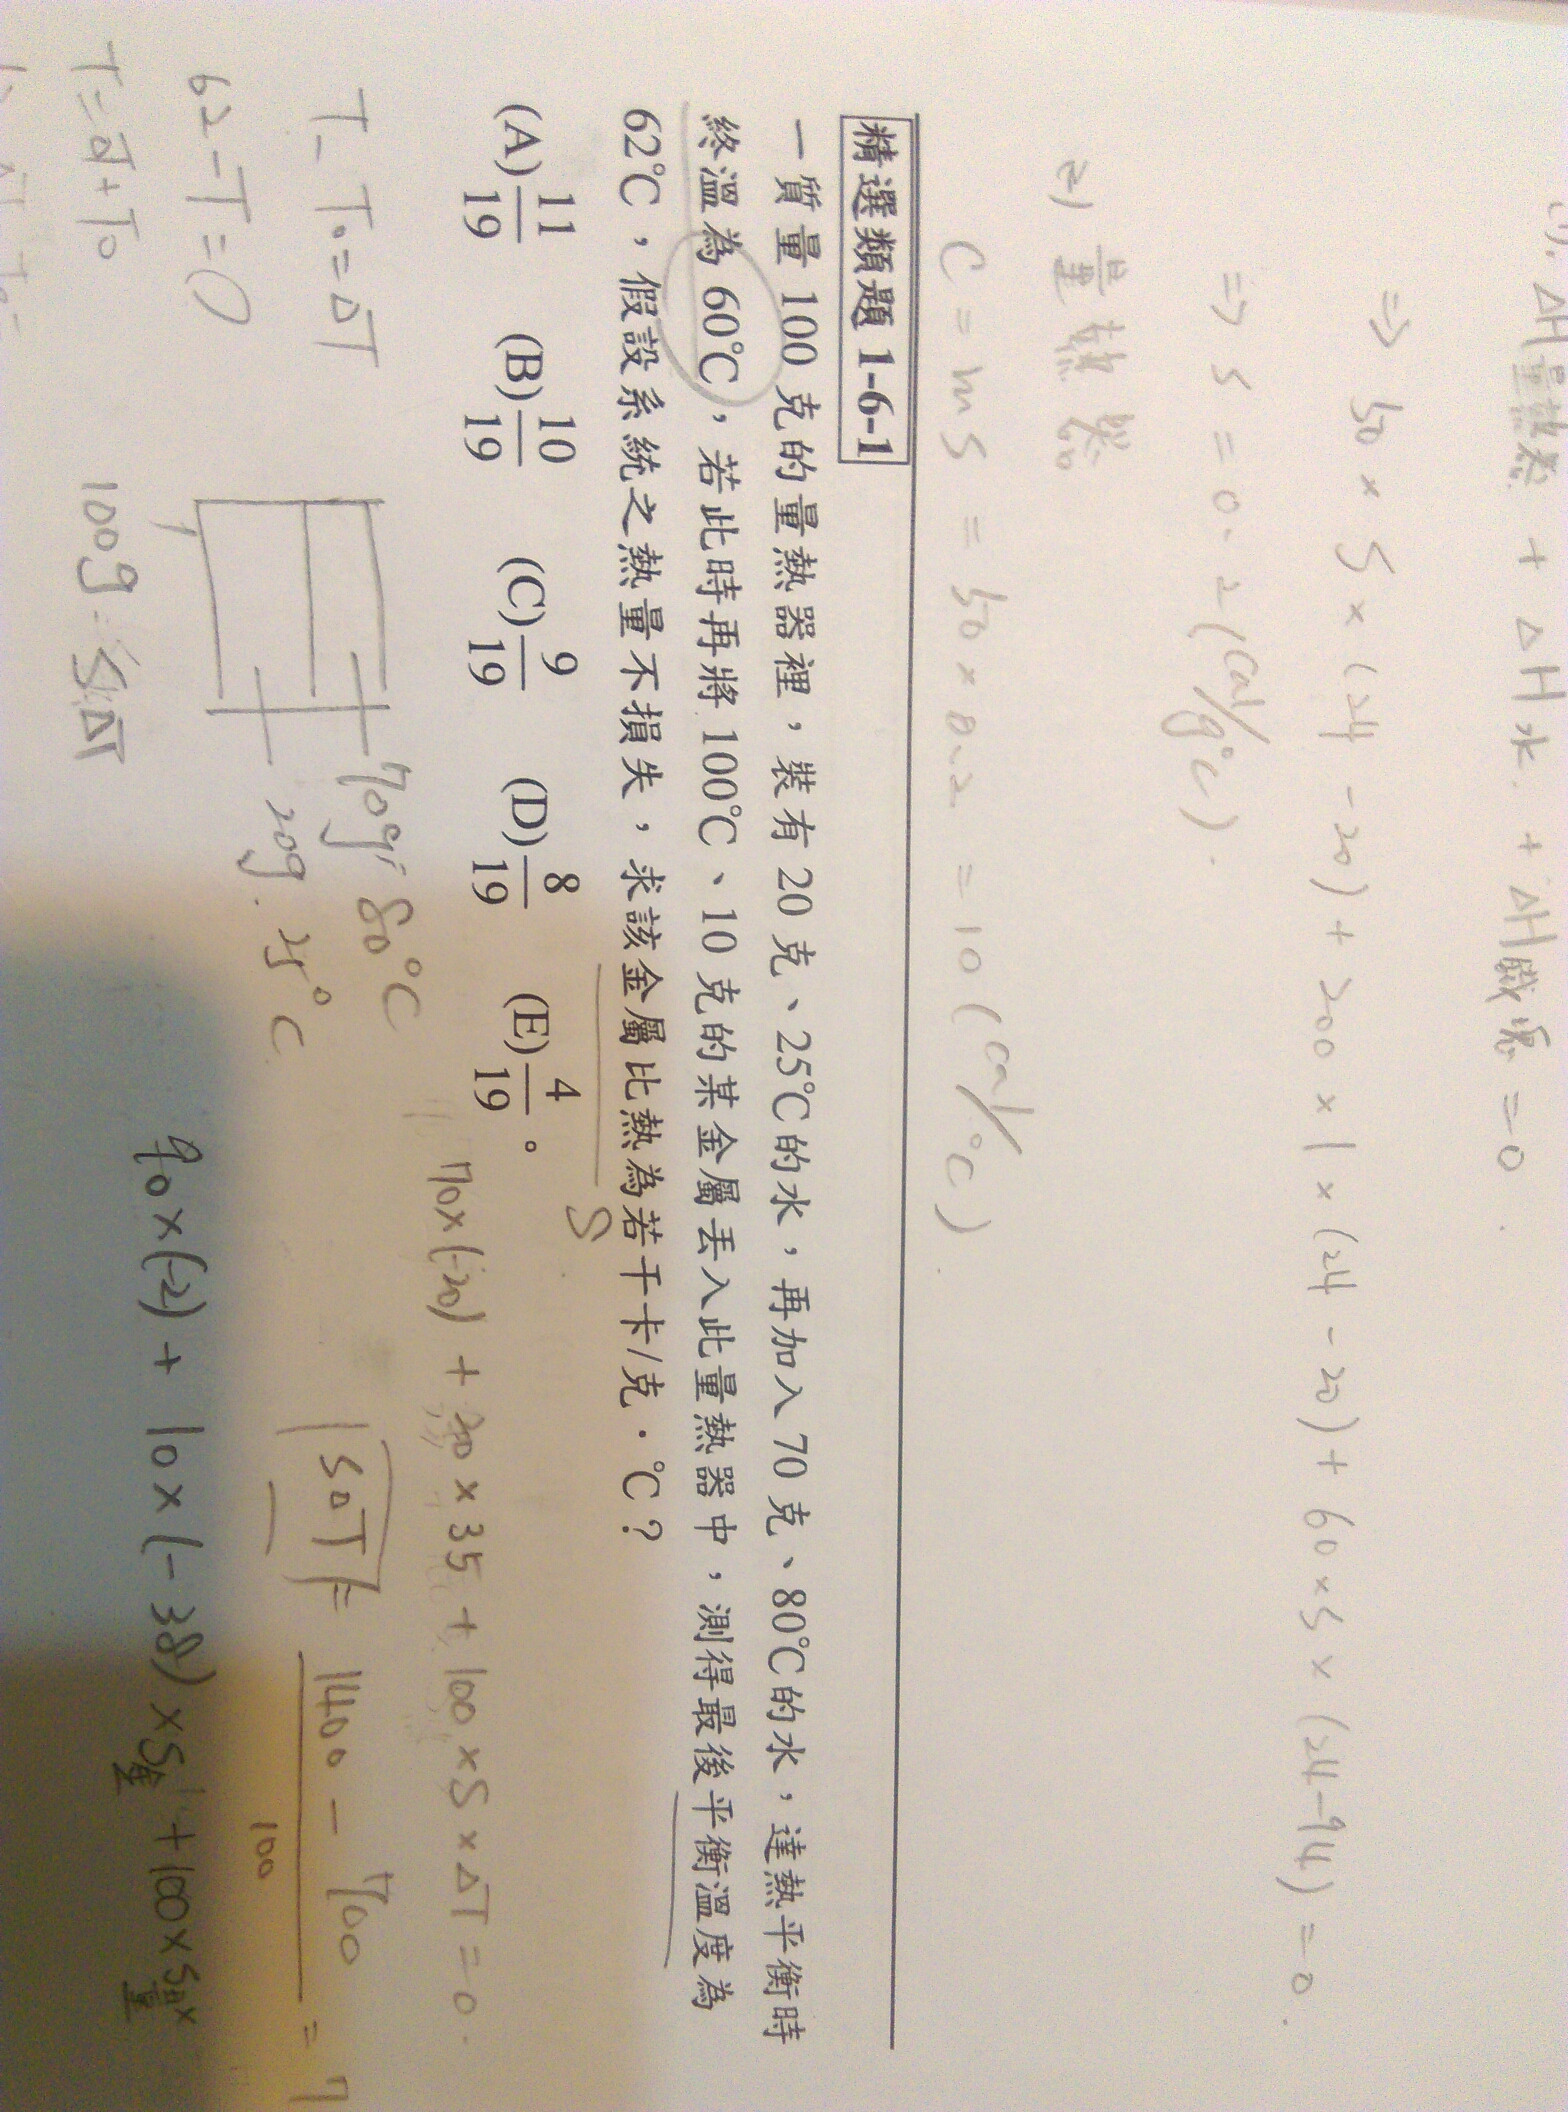 (1). ΔH量熱器 + ΔH水 + ΔH = 0
⇒ 50 × S × (24 - 20) + 200 × 1 × (24 - 20) + 60 × S × (24 - 94) = 0
⇒ S = 0.2 (cal/g°C).
2) 量熱器
C = mS = 50 × 0.2 = 10 (cal/°C).
精選類題 1-6-1
一質量 100 克的量熱器裡,裝有 20 克、25℃的水,再加入 70 克、80℃的水,達熱平衡時
終溫為 60℃,若此時再將 100℃、10 克的某金屬丟入此量熱器中,測得最後平衡溫度為
62℃,假設系統之熱量不損失,求該金屬比熱為若干卡/克·℃?
S
(A) 11/19 (B) 10/19 (C) 9/19 (D) 8/19 (E) 4/19 。
70×(-20) + 20 × 35 + 100 × S × ΔT = 0.
T - T0 = ΔT
70g, 80°C
SΔT = 1400 - 700 / 100 = 7
62 - T = 0
20g. 25°C
90×(-2) + 10×(-38)×S + 100×S量×
T = ΔT + T0
100g. SΔT